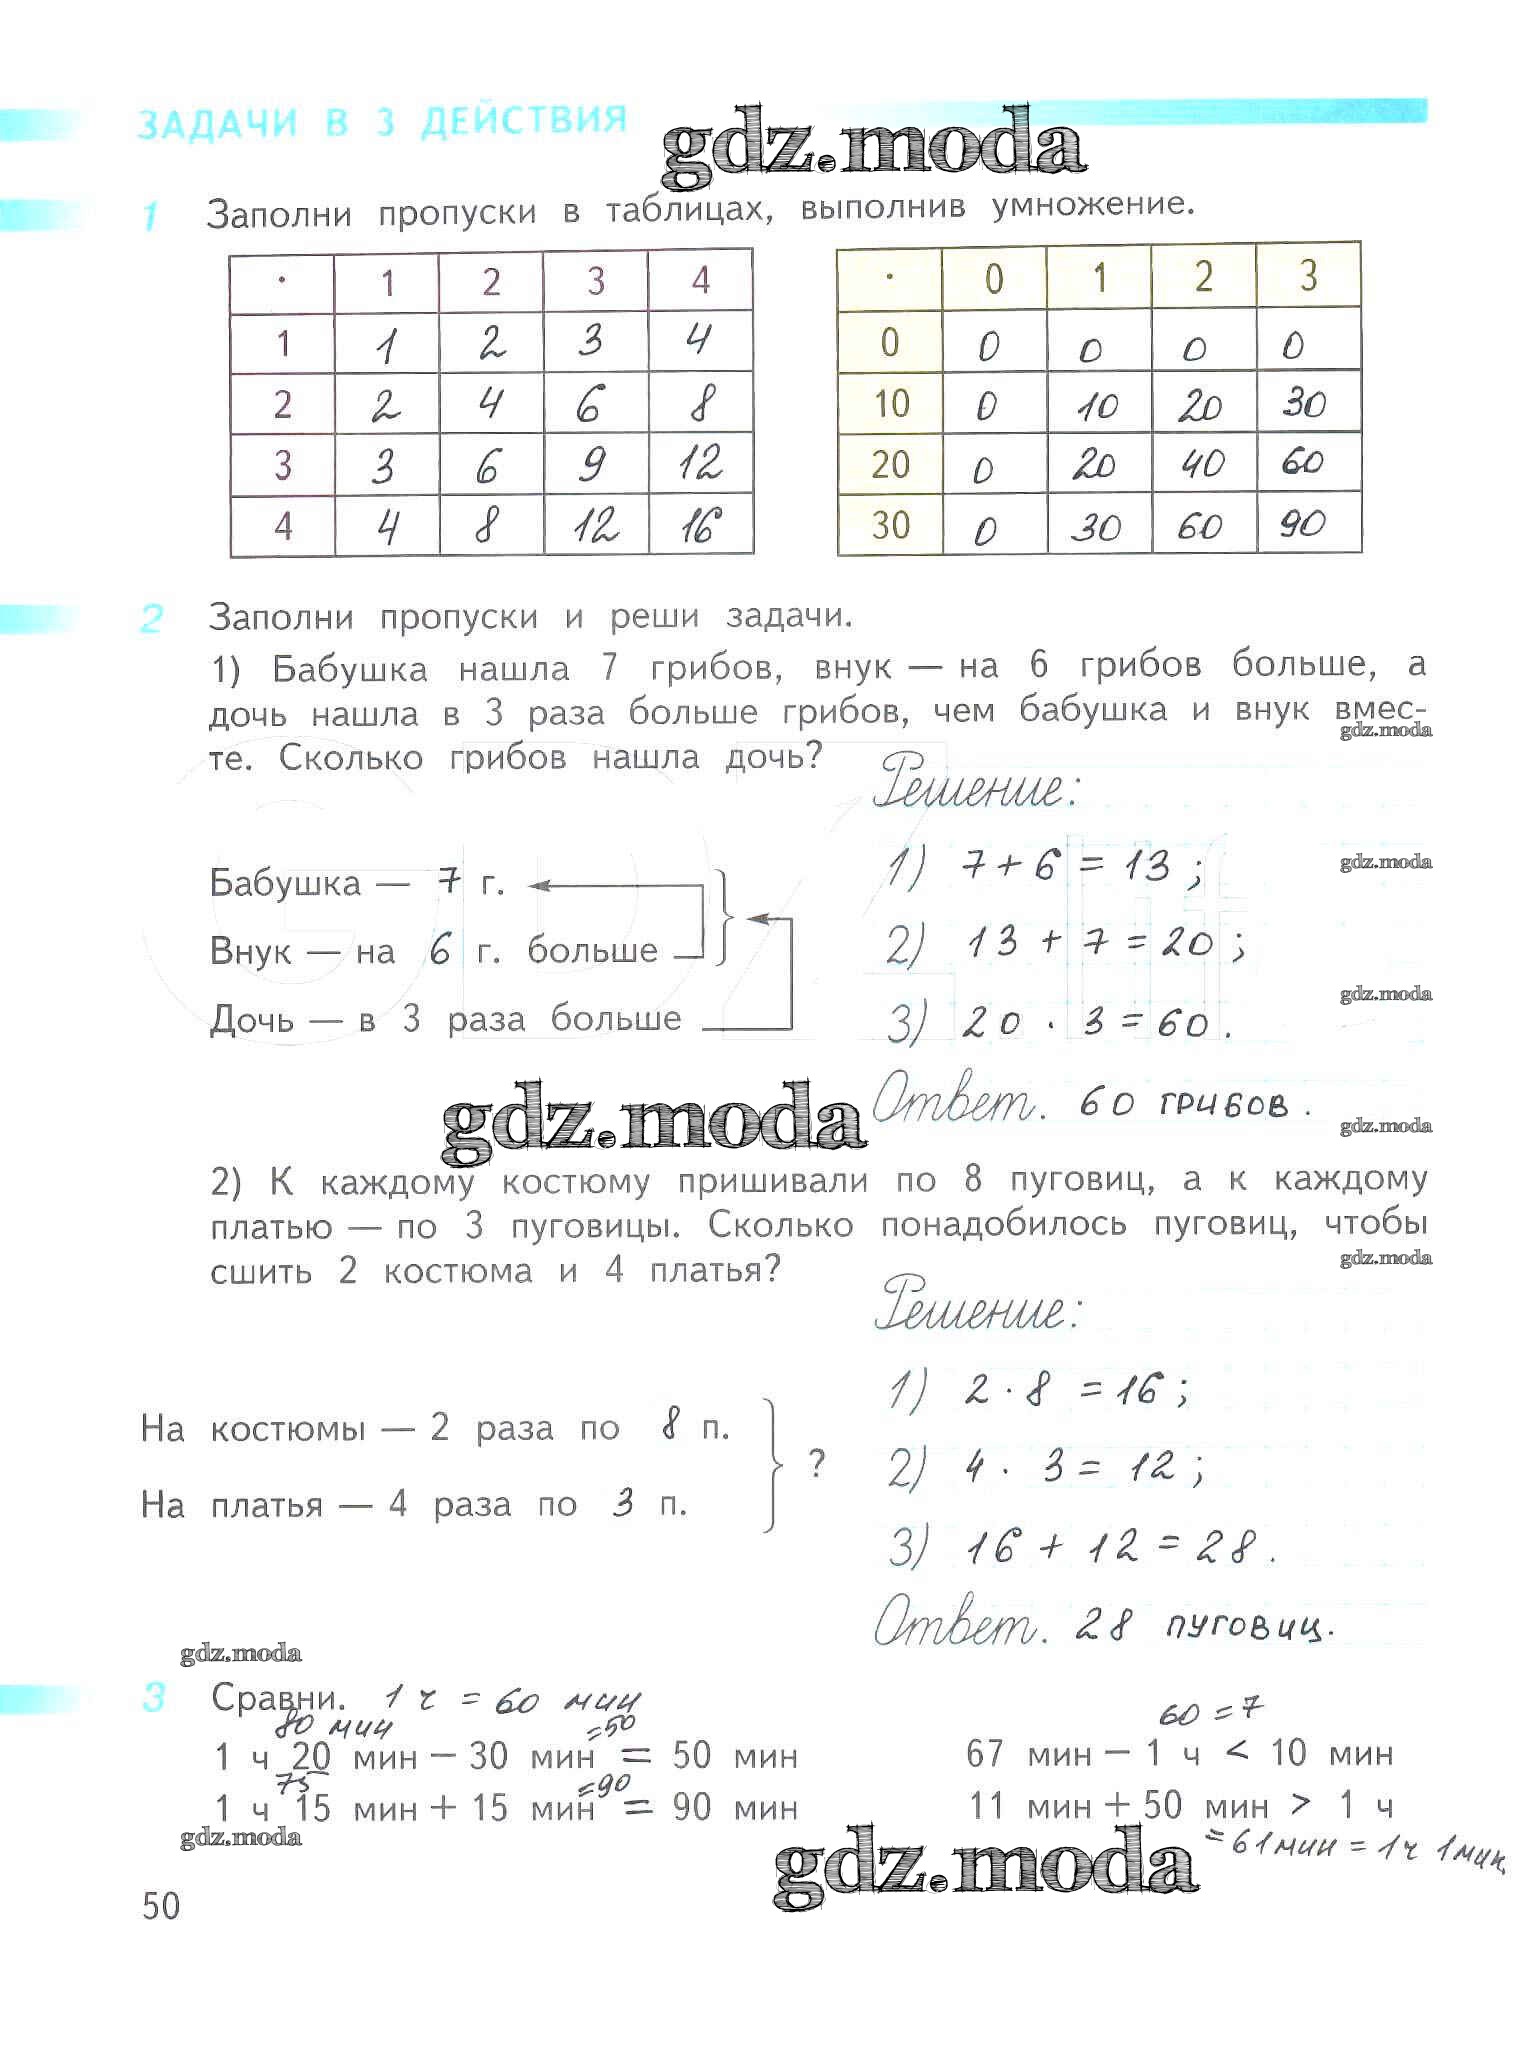 ЗАДАЧИ В 3 ДЕЙСТВИЯ
gdz.moda
1 Заполни пропуски в таблицах, выполнив умножение.
· 1 2 3 4
1 1 2 3 4
2 2 4 6 8
3 3 6 9 12
4 4 8 12 16
· 0 1 2 3
0 0 0 0 0
10 0 10 20 30
20 0 20 40 60
30 0 30 60 90
2 Заполни пропуски и реши задачи.
1) Бабушка нашла 7 грибов, внук — на 6 грибов больше, а
дочь нашла в 3 раза больше грибов, чем бабушка и внук вмес-
gdz.moda
те. Сколько грибов нашла дочь?
Бабушка — 7 г.
Внук — на 6 г. больше
Дочь — в 3 раза больше
Решение:
1) 7 + 6 = 13 ;
gdz.moda
2) 13 + 7 = 20 ;
gdz.moda
3) 20 · 3 = 60 .
Ответ. 60 грибов .
gdz.moda
gdz.moda
2) К каждому костюму пришивали по 8 пуговиц, а к каждому
платью — по 3 пуговицы. Сколько понадобилось пуговиц, чтобы
gdz.moda
сшить 2 костюма и 4 платья?
На костюмы — 2 раза по 8 п.
На платья — 4 раза по 3 п.
?
Решение:
1) 2 · 8 = 16 ;
2) 4 · 3 = 12 ;
3) 16 + 12 = 28 .
Ответ. 28 пуговиц.
gdz.moda
3 Сравни. 1 ч = 60 мин
80 мин =50
1 ч 20 мин – 30 мин = 50 мин
75 =90
1 ч 15 мин + 15 мин = 90 мин
60 = 7
67 мин – 1 ч < 10 мин
11 мин + 50 мин > 1 ч
= 61 мин = 1 ч 1 мин.
gdz.moda
gdz.moda
50